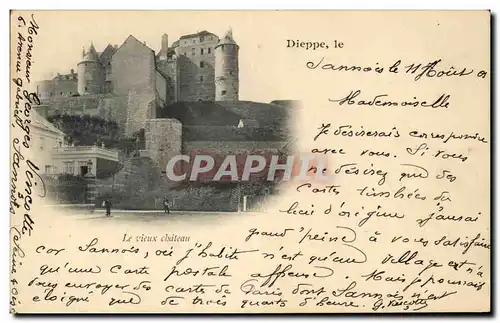 Dieppe, le
Sannois le 11 Août 01
Mademoiselle
Je désirerais correspondre
avec vous. Si vous
ne désirez que des
carte timbrées du
lieu d'origine j'aurai
grand'peine à vous satisfaire
car Sannois, où j'habite n'est qu'un village et n'a
qu'une carte postale affreuse. Mais je pourrais
vous envoyer des carte de Paris dont Sannois n'est
éloigné que de trois quarts d'heure.
Le vieux château
CPARAMA
Monsieur Georges
6, Avenue
Sannois